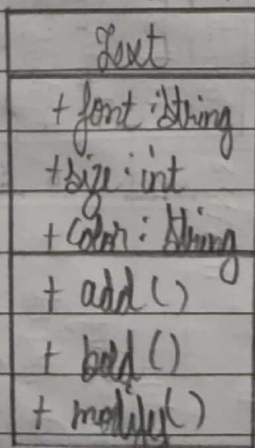 Text
+ font : String
+ size : int
+ color : String
+ add ()
+ bold ()
+ modify()